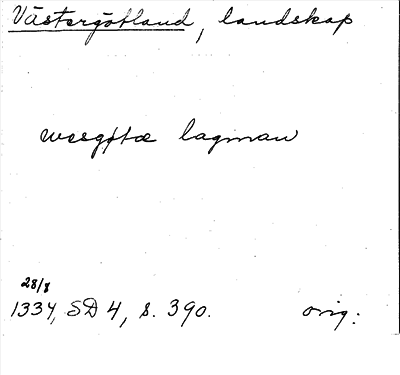 Västergötland, landskap
wesgøtæ lagman
28/8
1334, SD 4, s. 390. orig.